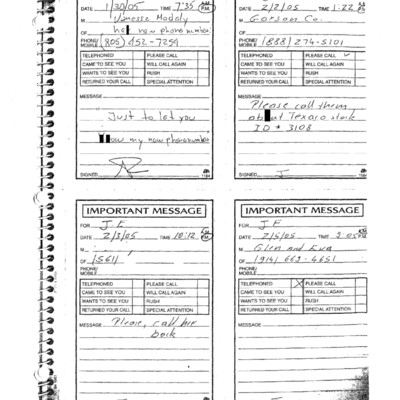 DATE 1/30/05 TIME 7:35 AM PM
M
OF new phone number
PHONE/ MOBILE (805) 452-7259
TELEPHONED PLEASE CALL
CAME TO SEE YOU WILL CALL AGAIN
WANTS TO SEE YOU RUSH
RETURNED YOUR CALL SPECIAL ATTENTION
MESSAGE
Just to let you
now my new phone number
SIGNED 1184
DATE 2/2/05 TIME 1:22
M Gorson Co.
OF
PHONE/ MOBILE (888) 274-5101
TELEPHONED PLEASE CALL
CAME TO SEE YOU WILL CALL AGAIN
WANTS TO SEE YOU RUSH
RETURNED YOUR CALL SPECIAL ATTENTION
MESSAGE
Please call them
Texaco
ID # 3108
SIGNED J
IMPORTANT MESSAGE
FOR J.E
DATE 2/3/05 TIME 10:12 AM PM
M
OF (561)
PHONE/ MOBILE
TELEPHONED PLEASE CALL
CAME TO SEE YOU WILL CALL AGAIN
WANTS TO SEE YOU RUSH
RETURNED YOUR CALL SPECIAL ATTENTION
MESSAGE Please, call her
back
IMPORTANT MESSAGE
FOR J.E
DATE 2/5/05 TIME
M Glen and Eva
OF (914) 669-4651
PHONE/ MOBILE
TELEPHONED X PLEASE CALL
CAME TO SEE YOU WILL CALL AGAIN
WANTS TO SEE YOU RUSH
RETURNED YOUR CALL SPECIAL ATTENTION
MESSAGE